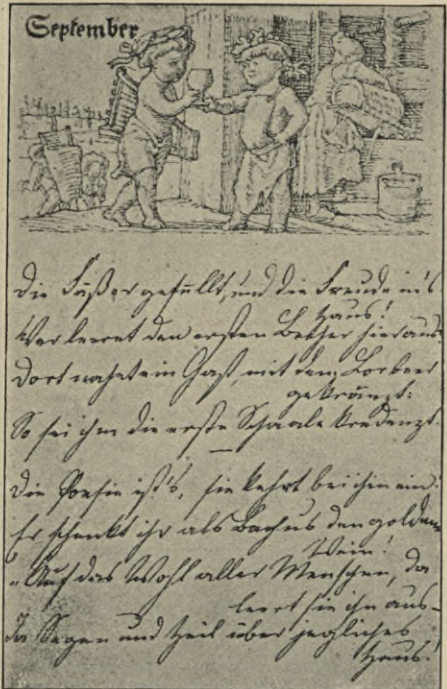 September
Die Fässer gefüllt, und die Freude in's
Haus!
Wer leeret den ersten Becher hieraus
Dort nahet ein Gast, mit dem Lorbeer
gekränzt:
So sei ihm die erste Schaale kredenzt.
Die Poesie ist's, sie kehrt bei ihm ein:
Er schenkt ihr als Bachus den golden
Wein!
"Auf das Wohl aller Menschen, da
leert sie ihn aus
Ja Segen und Heil über jegliches
Haus!